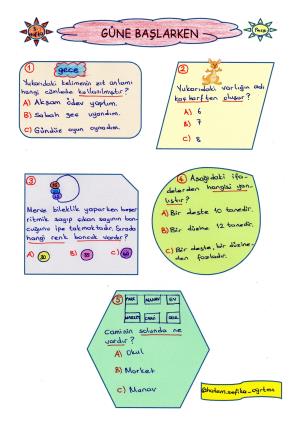 GÜNE BAŞLARKEN
1
gece
Yukarıdaki kelimenin zıt anlamı
hangi cümlede kullanılmıştır?
A) Akşam ödev yaptım.
B) Sabah geç uyandım.
C) Gündüz oyun oynadım.
2
Yukarıdaki varlığın adı
kaç harften oluşur?
A) 6
B) 7
C) 8
3
Merve bileklik yaparken beşer
ritmik sayıp çıkan sayının boncu-
ğunu ipe takmaktadır. Sırada
hangi renk boncuk vardır?
A) 30
B) 35
C) 40
4 Aşağıdaki ifa-
delerden hangisi yan-
lıştır?
A) Bir deste 10 tanedir.
B) Bir düzine 12 tanedir.
C) Bir deste, bir düzine-
den fazladır.
5
PARK MANAV EV
MARKET CAMİ OKUL
Caminin solunda ne
vardır?
A) Okul
B) Market
C) Manav